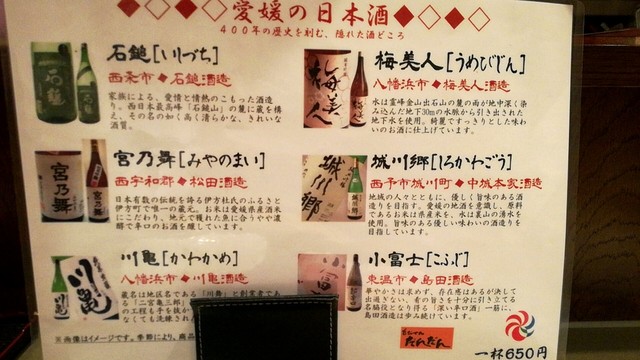 愛媛の日本酒
400年の歴史を刻む、隠れた酒どころ
石鎚[いしづち]
西条市◆石鎚酒造
家族による、愛情と情熱のこもった酒造
り。西日本最高峰「石鎚山」の麓に蔵を構
え、その名の如く高く清らかな、きれいな
酒質。
梅美人[うめびじん]
八幡浜市◆梅美人酒造
水は霊峰金山出石山の麓の雨が地中深く染
み込んだ地下30mの水脈から引き出された
地下水を使用。綺麗ですっきりとした味わ
いのお酒に仕上げています。
宮乃舞[みやのまい]
西宇和郡◆松田酒造
日本有数の伝統を誇る伊方杜氏のふるさと
伊方町で唯一の蔵元。お米は愛媛県産酒米
にこだわり、地元で穫れた魚に合うやや濃
醇で辛口のお酒を醸しています。
城川郷[しろかわごう]
西予市城川町◆中城本家酒造
地域の人々とともに、優しく旨味のある酒
造りを目指す。愛媛の地酒を意識し、原料
であるお米は県産米を、水は裏山の湧水を
使用。旨味のある優しい味わいの酒造りを
目指しています。
川亀[かわかめ]
八幡浜市◆川亀酒造
蔵名は地区名である「川舞」と創業者であ
「二宮亀三郎」
の工程も手を抜か
なくても洗練され
小富士[こふじ]
東温市◆島田酒造
華やかさは求めず、存在感はあるが決して
出過ぎない、肴の旨さを十分に引き立てる
名脇役となり得る「深い辛口酒」一筋に、
島田酒造は歩み続けています。
※画像はイメージです。季節により、商品
だんだん
一杯650円
石鎚
梅美人
宮乃舞
城川郷
川亀
小富士